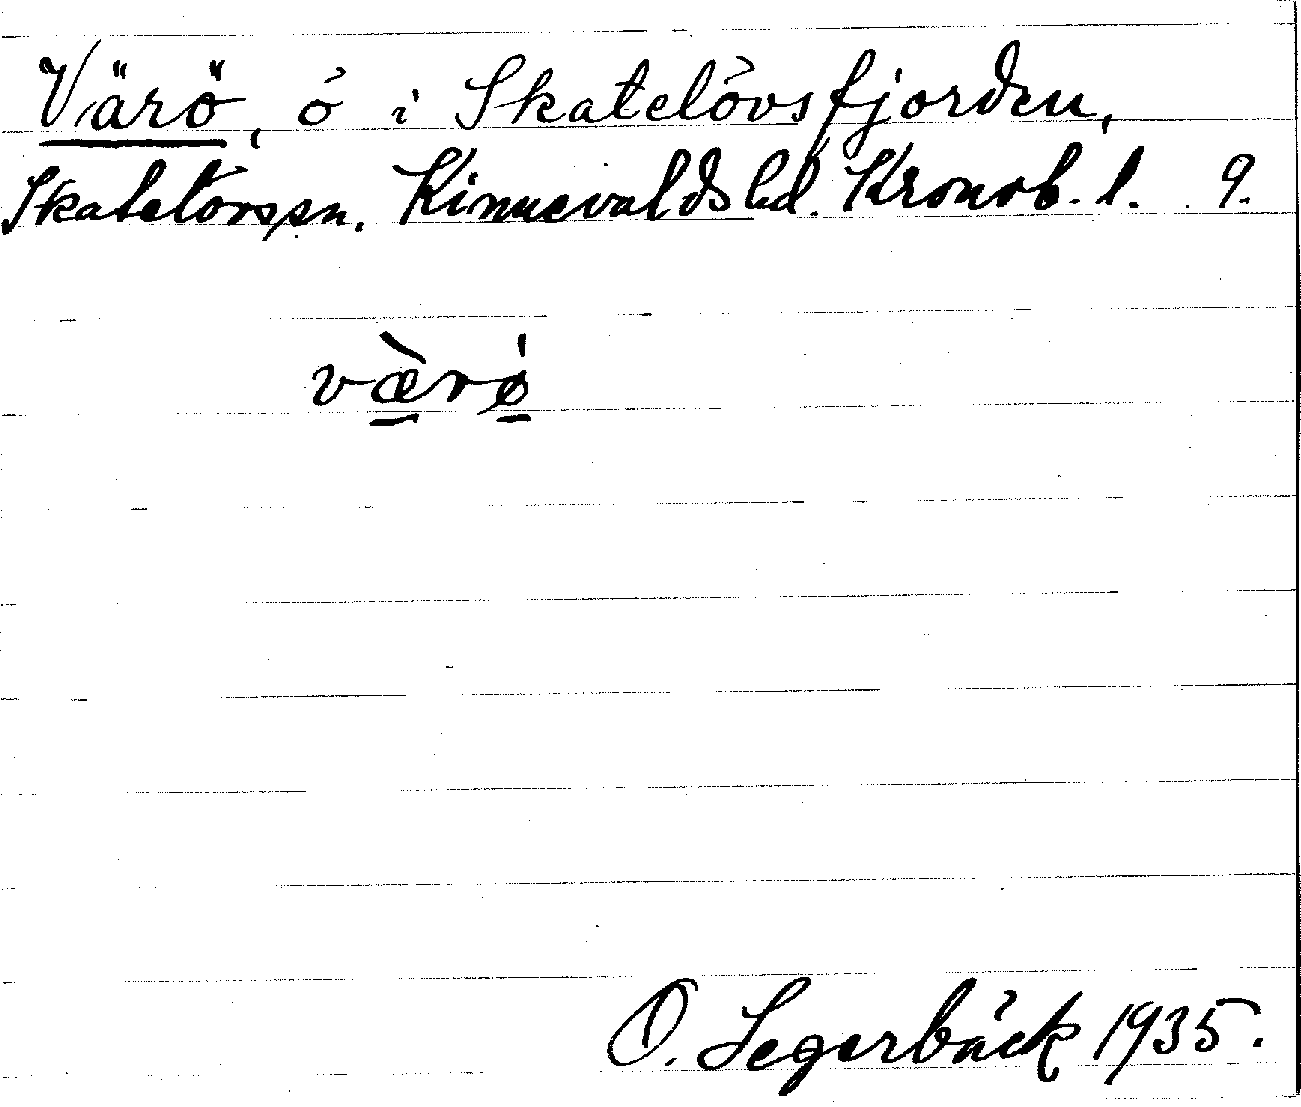 Värö, ö i Skatelövsfjorden,
Skatelövs sn. Kinnevalds hd. Kronob. l. 9.
væ̀rø
O. Segerbäck 1935.